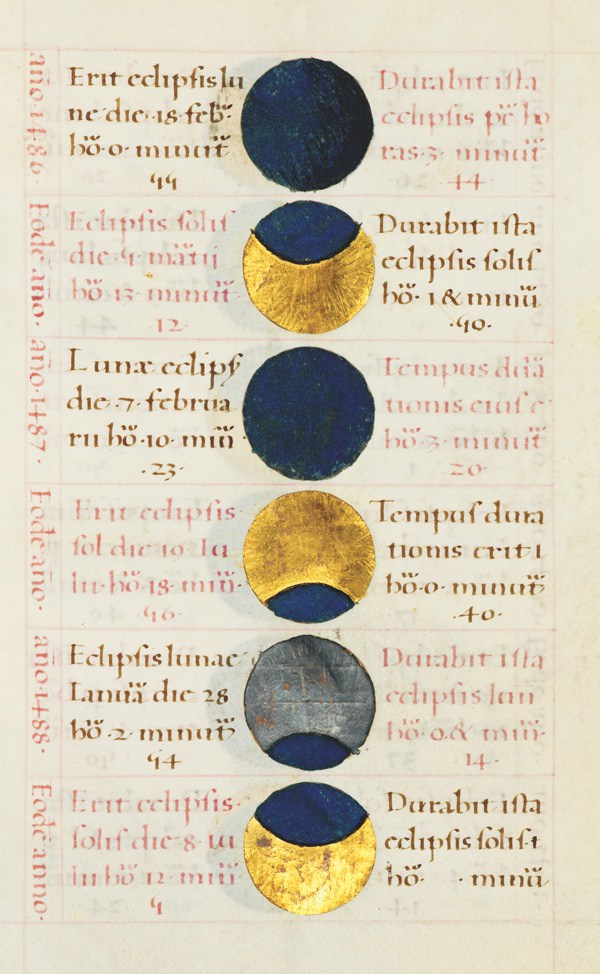 año·1486·
Erit eclipsis lu
ne die·18·feb̃·
hõ·0·minut̃
55
Durabit ista
eclipsis pẽ ho
ras·3·minut̃
44
Eodẽ año·
Eclipsis solis
die·5·mãtii
hõ·13·minut̃
·12·
Durabit ista
eclipsis solis
hõ·1&minũ
·50·
año·1487·
Lunæ eclips
die·7·februa
rii hõ·10·miñ·
·23·
Tempus durã
tionis eius e
hõ·3·minut̃
20·
Eodẽ año·
Erit eclipsis
sol die 10 Iu
lii·hõ·18·miñ·
56·
Tempus dura
tionis erit i
hõ·0·minut̃
·40·
año·1488·
Eclipsis lunae
Ianuã die 28
hõ·2·minut̃
54
Durabit ista
eclipsis lun
hõ·0&miñ·
14·
Eodẽ anno·
Erit eclipsis·
solis die·8·iu
lii hõ 12·miñ·
5
Durabit ista
eclipsis solis·t
hõ· ·minũ